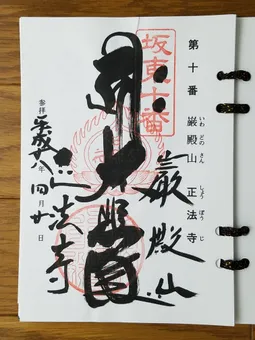 坂東十番
第十番 巌殿山 正法寺
いわ どの さん しょう ぼう じ
巖殿山
正法寺
参拝 平成六年四月廿日